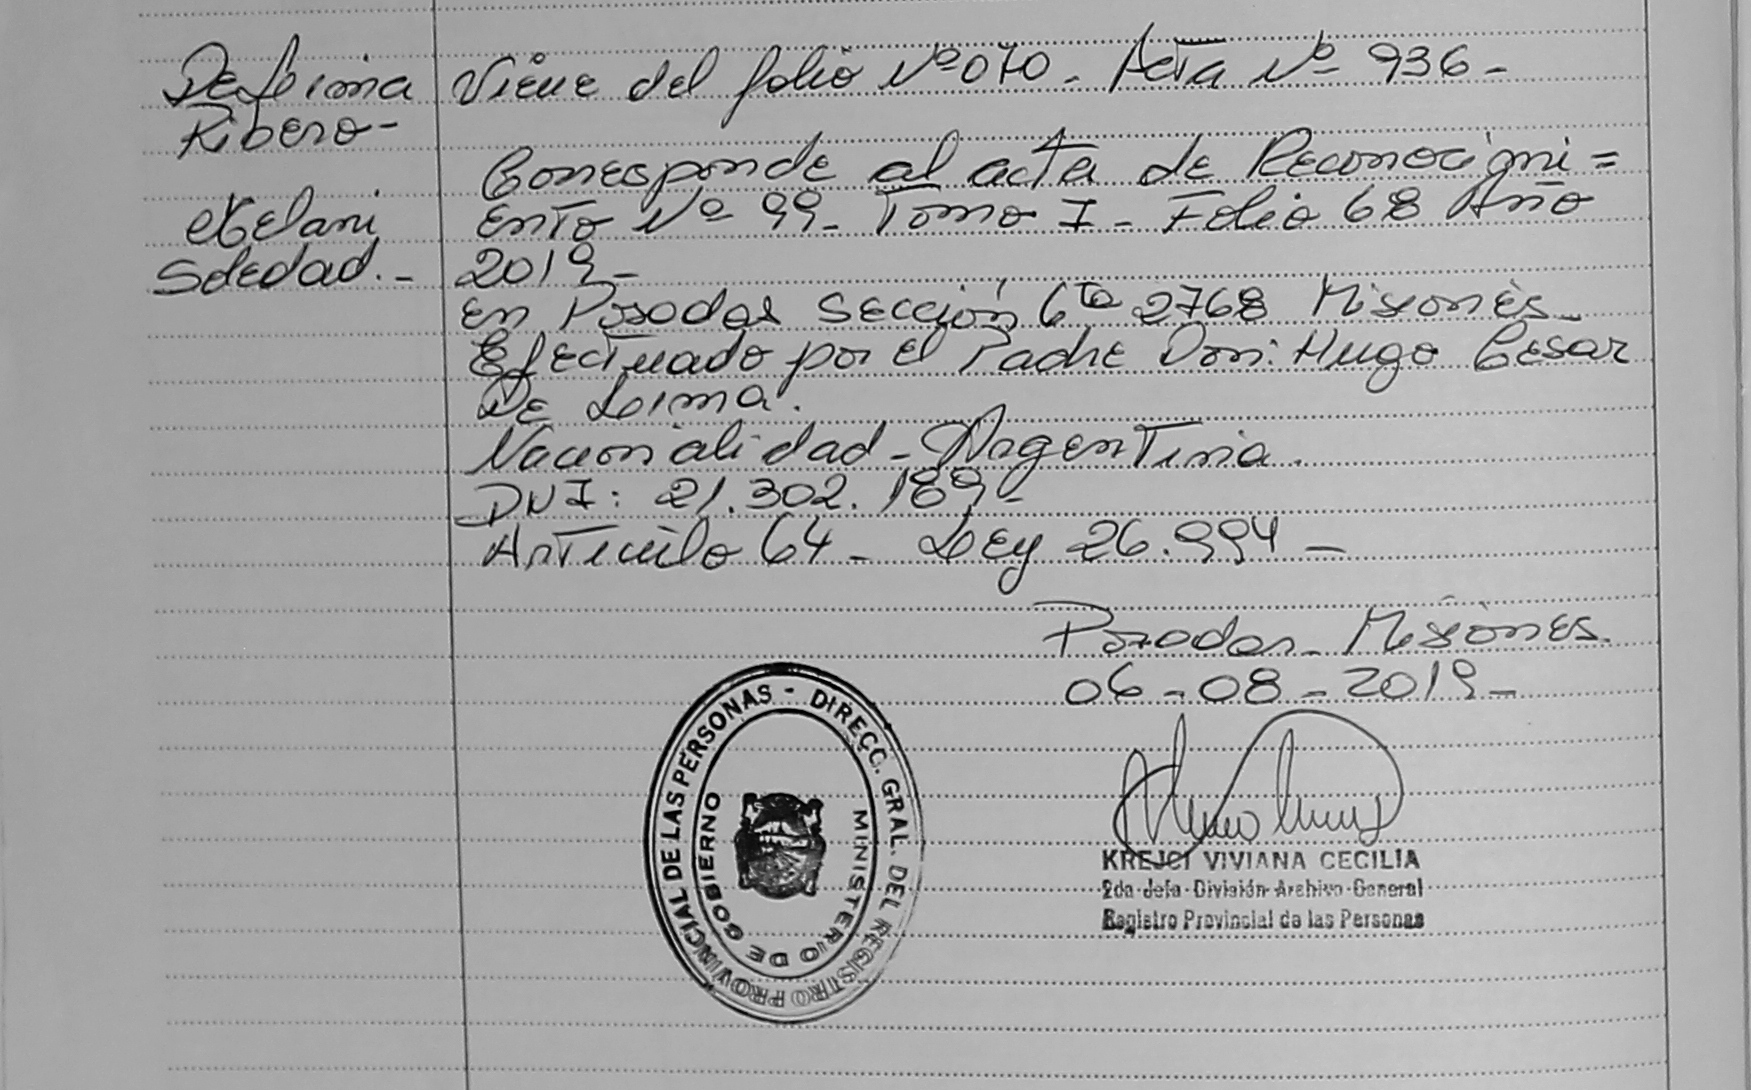 De Lima
Ribero-
Melani
Soledad.-
Viene del folio Nº 070- Acta Nº 936-
Corresponde al acta de Reconocimi=
ento Nº 99- Tomo I- Folio 68 Año
2019-
en Posadas Sección 6ta 2768 Misiones-
Efectuado por el Padre Don: Hugo Cesar
De Lima.
Nacionalidad- Argentina.
DNI: 21.302.189-
Articulo 64- Ley 26.994-
Posadas- Misiones.
06-08-2019-
DIRECC. GRAL. DEL REGISTRO PROVINCIAL DE LAS PERSONAS -
MINISTERIO DE GOBIERNO
KREJCI VIVIANA CECILIA
2da Jefa División Archivo General
Registro Provincial de las Personas